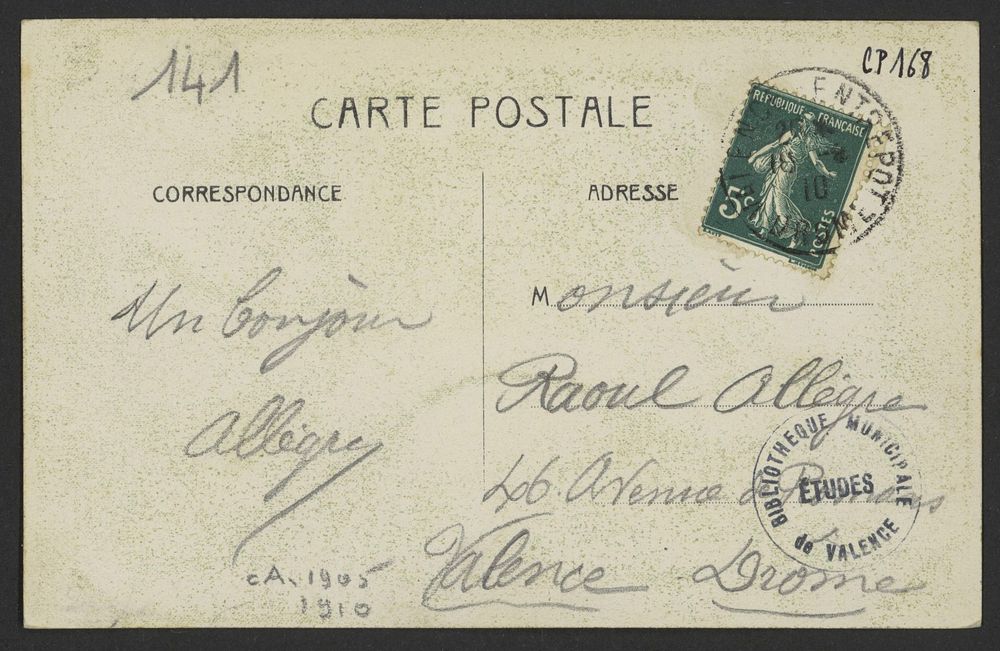 141
CP168
CARTE POSTALE
CORRESPONDANCE
ADRESSE
REPUBLIQUE FRANÇAISE
5c
POSTES
ENTREPOT
10
10
Un bonjour
Allègre
Monsieur
Raoul Allègre
46 Avenue de Romans
Valence Drome
BIBLIOTHEQUE MUNICIPALE
ÉTUDES
de VALENCE
cA. 1905
1910